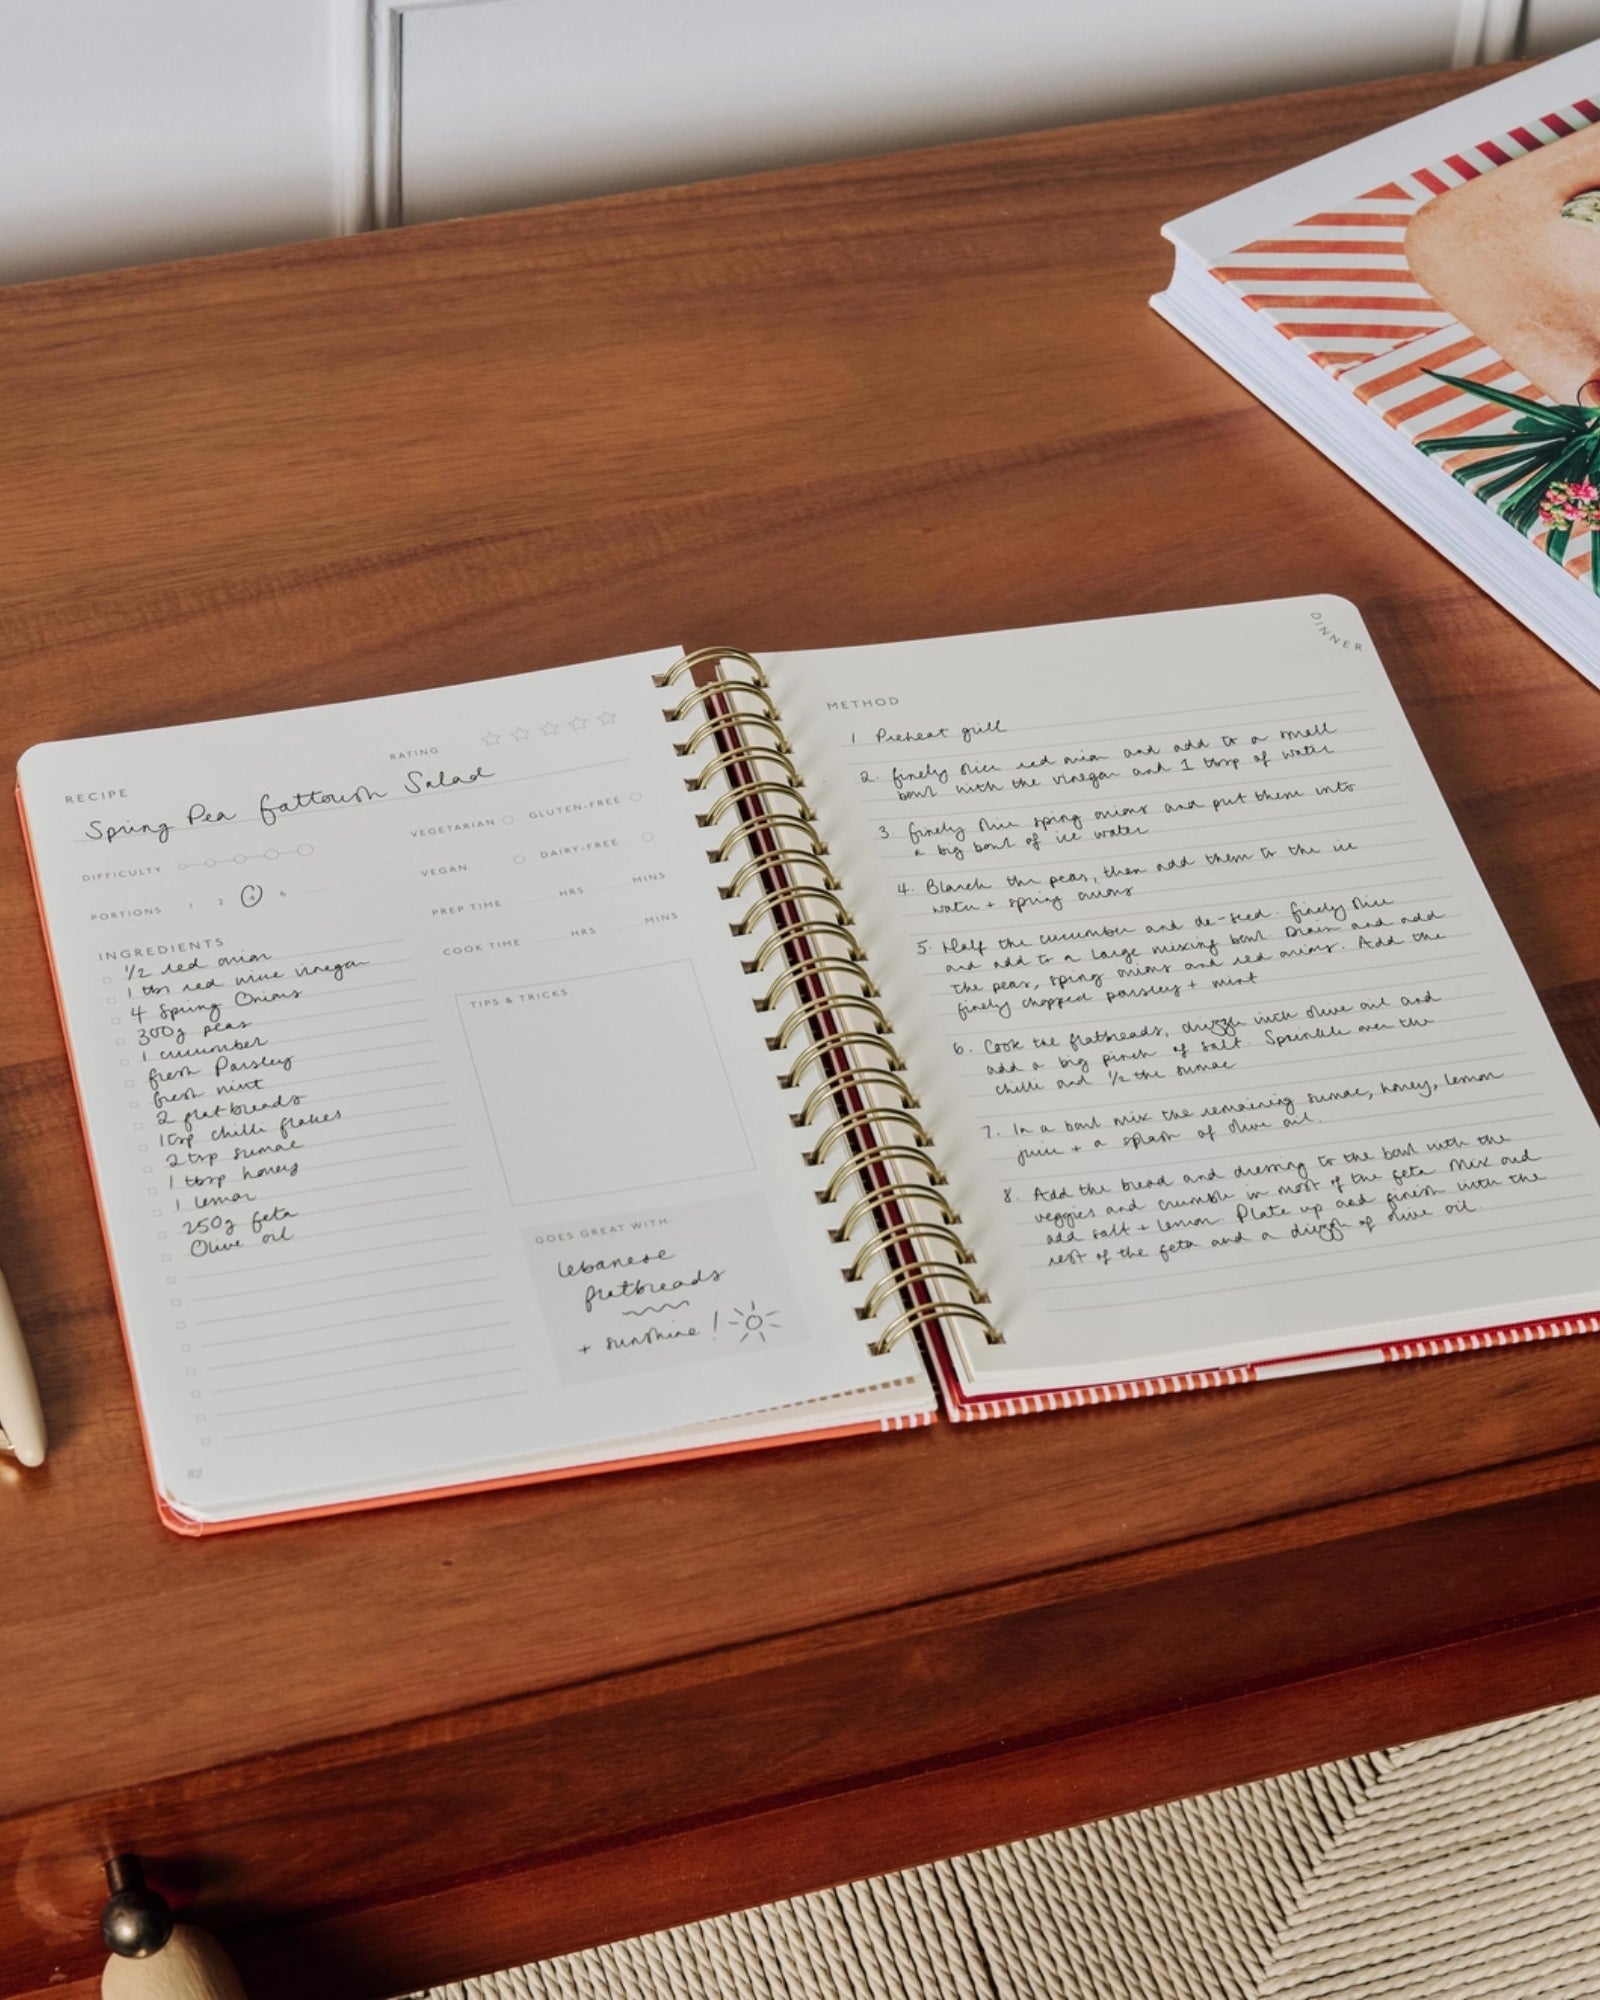 RATING
RECIPE
Spring Pea Fattoush Salad
DIFFICULTY
VEGETARIAN GLUTEN-FREE
VEGAN DAIRY-FREE
PORTIONS 1 2 4 6
PREP TIME HRS MINS
COOK TIME HRS MINS
INGREDIENTS
1/2 red onion
1 tbs red wine vinegar
4 Spring Onions
300g peas
1 cucumber
fresh Parsley
fresh mint
2 flatbreads
1tsp chilli flakes
2 tsp sumac
1 tbsp honey
1 lemon
250g feta
Olive oil
TIPS & TRICKS:
GOES GREAT WITH:
lebanese
flatbreads
+ sunshine!
82
DINNER
METHOD
1. Preheat grill
2. finely slice red onion and add to a small
bowl with the vinegar and 1 tbsp of water
3. finely slice spring onions and put them into
a big bowl of ice water
4. Blanch the peas, then add them to the ice
water + spring onions
5. Half the cucumber and de-seed. finely slice
and add to a large mixing bowl. Drain and add
the peas, spring onions and red onions. Add the
finely chopped parsley + mint
6. Cook the flatbreads, drizzle with olive oil and
add a big pinch of salt. Sprinkle over the
chilli and 1/2 the sumac
7. In a bowl mix the remaining sumac, honey, lemon
juice + a splash of olive oil.
8. Add the bread and dressing to the bowl with the
veggies and crumble in most of the feta. Mix and
add salt + lemon. Plate up and finish with the
rest of the feta and a drizzle of olive oil.